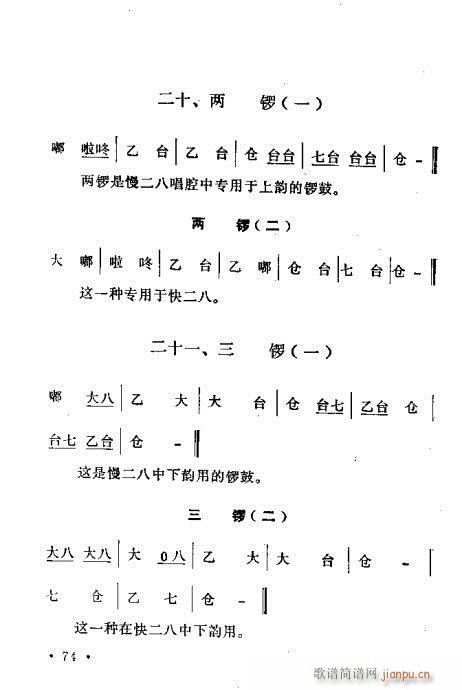 二十、两　锣（一）
嘟 啦咚 | 乙 台 | 乙 台 | 仓 台台 | 七台 台台 | 仓 - ‖
两锣是慢二八唱腔中专用于上韵的锣鼓。
两　锣（二）
大 嘟 | 啦 咚 | 乙 台 | 乙 嘟 | 仓 台 | 七 台 | 仓 - ‖
这一种专用于快二八。
二十一、三　锣（一）
嘟 大八 | 乙 大 | 大 台 | 仓 台七 | 乙台 仓 |
台七 乙台 | 仓 - ‖
这是慢二八中下韵用的锣鼓。
三　锣（二）
大八 大八 | 大 0八 | 乙 大 | 大 台 | 仓 - |
七 仓 | 乙 七 | 仓 - ‖
这一种在快二八中下韵用。
· 74 ·
歌谱简谱网
jianpu.cn